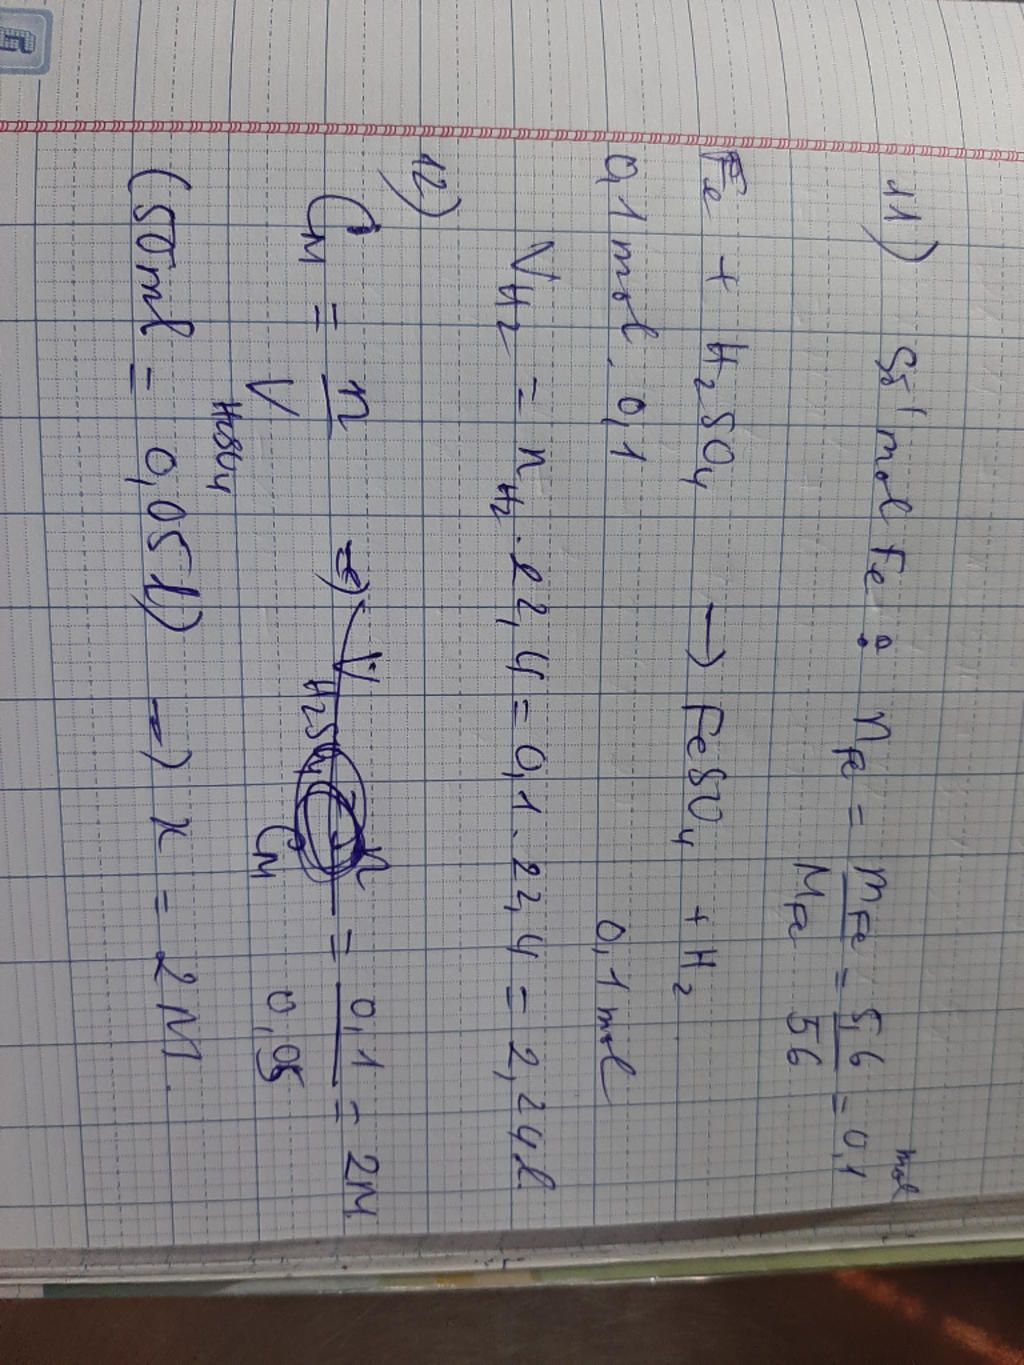 11) Số mol Fe : nFe = mFe/MFe = 5,6/56 = 0,1 mol
Fe + H2SO4 → FeSO4 + H2
0,1 mol. 0,1 0,1 mol
VH2 = nH2 . 22,4 = 0,1 . 22,4 = 2,24l
12)
CM = n/V H2SO4 => VH2SO4 n/CM = 0,1/0,05 = 2M
(50ml = 0,05l) => x = 2M.